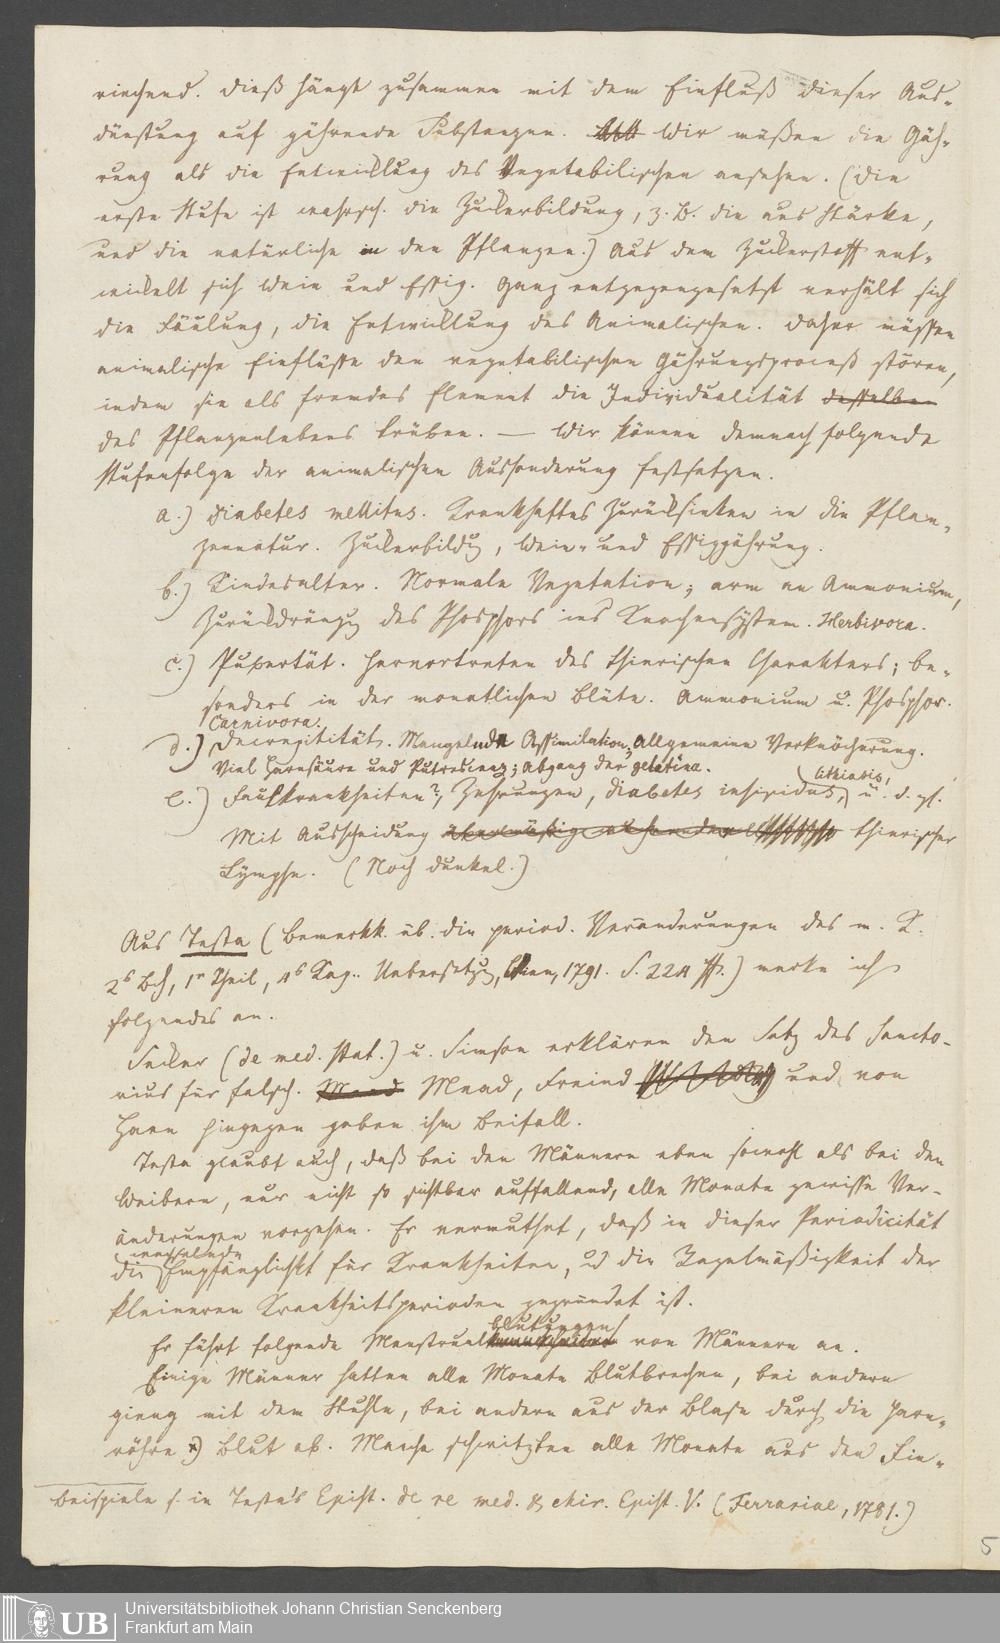 riechend. Dieß hängt zusammen mit dem Einfluß dieser Aus-
dünstung auf gährende Substanzen. Wir müßen die Gäh-
rung als die Entwicklung des Vegetabilischen ansehen. (Die
erste Stufe ist wahrsch. die Zuckerbildung, z. B. die aus Stärke,
und die natürliche in den Pflanzen.) Aus dem Zuckerstoff ent-
wickelt sich Wein und Essig. Ganz entgegengesetzt verhält sich
die Fäulung, die Entwicklung des Animalischen. Daher müssen
animalische Einflüsse den vegetabilischen Gährungsproceß stören,
indem sie als fremdes Element die Individualität desselben
des Pflanzenlebens trüben. — Wir können demnach folgende
Stufenfolge der animalischen Aussonderung festsetzen.
a.) Diabetes mellitus. Krankhaftes Zurücksinken in die Pflan-
zennatur. Zuckerbildg, Wein- und Essiggährung.
b.) Kindesalter. Normale Vegetation; arm an Ammonium,
Zurückdrängg des Phosphors ins Knochensystem. Herbivora.
c.) Pubertät. Hervortreten des thierischen Charakters; be-
sonders in der monatlichen Blüte. Ammonium u. Phosphor.
Carnivora.
d.) Decrepitität. Mangelnde Assimilation, Allgemeine Verknöcherung.
Viel Harnsäure und Putrescenz; Abgang der gelatina.
e.) Faulkrankheiten?, Zehrungen, diabetes insipidus, lithiasis, u. d. gl.
Mit Ausscheidung thierischer
Lymphe. (Noch dunkel.)
Aus Testa (Bemerkk. üb. die period. Veränderungen des m. K.
2s Bch, 1r Theil, 4s Kap. Uebersetzg, 1791. S. 224 ff.) merke ich
folgendes an.
(de med. stat.) u. Simson erklären den Satz des Sancto-
rius für falsch. Mead Mead, Freind und von
Haen hingegen geben ihm Beifall.
Testa glaubt auch, daß bei den Männern eben sowohl als bei den
Weibern, nur nicht so sichtbar auffallend, alle Monate gewisse Ver-
änderungen vorgehen. Er vermuthet, daß in dieser Periodicität
die wechselnde Empfänglichkt für Krankheiten, u die Regelmäßigkeit der
kleineren Krankheitsperioden gegründet ist.
Er führt folgende Menstrualblutungen von Männern an.
Einige Männer hatten alle Monate Blutbrechen, bei andern
gieng mit dem Stuhle, bei andern aus der Blase durch die Harn-
röhre *) Blut ab. Manche schwitzten alle Monate aus den Fin-
Beispiele s. in Testa's Epist. de re med. & chir. Epist. V. (Ferrariae, 1781.)
5
UB
Universitätsbibliothek Johann Christian Senckenberg
Frankfurt am Main